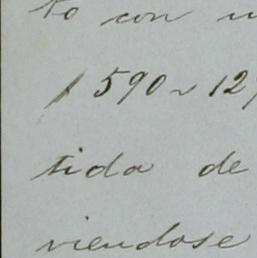 to con u
1590 ~ 12
tida de
viendose